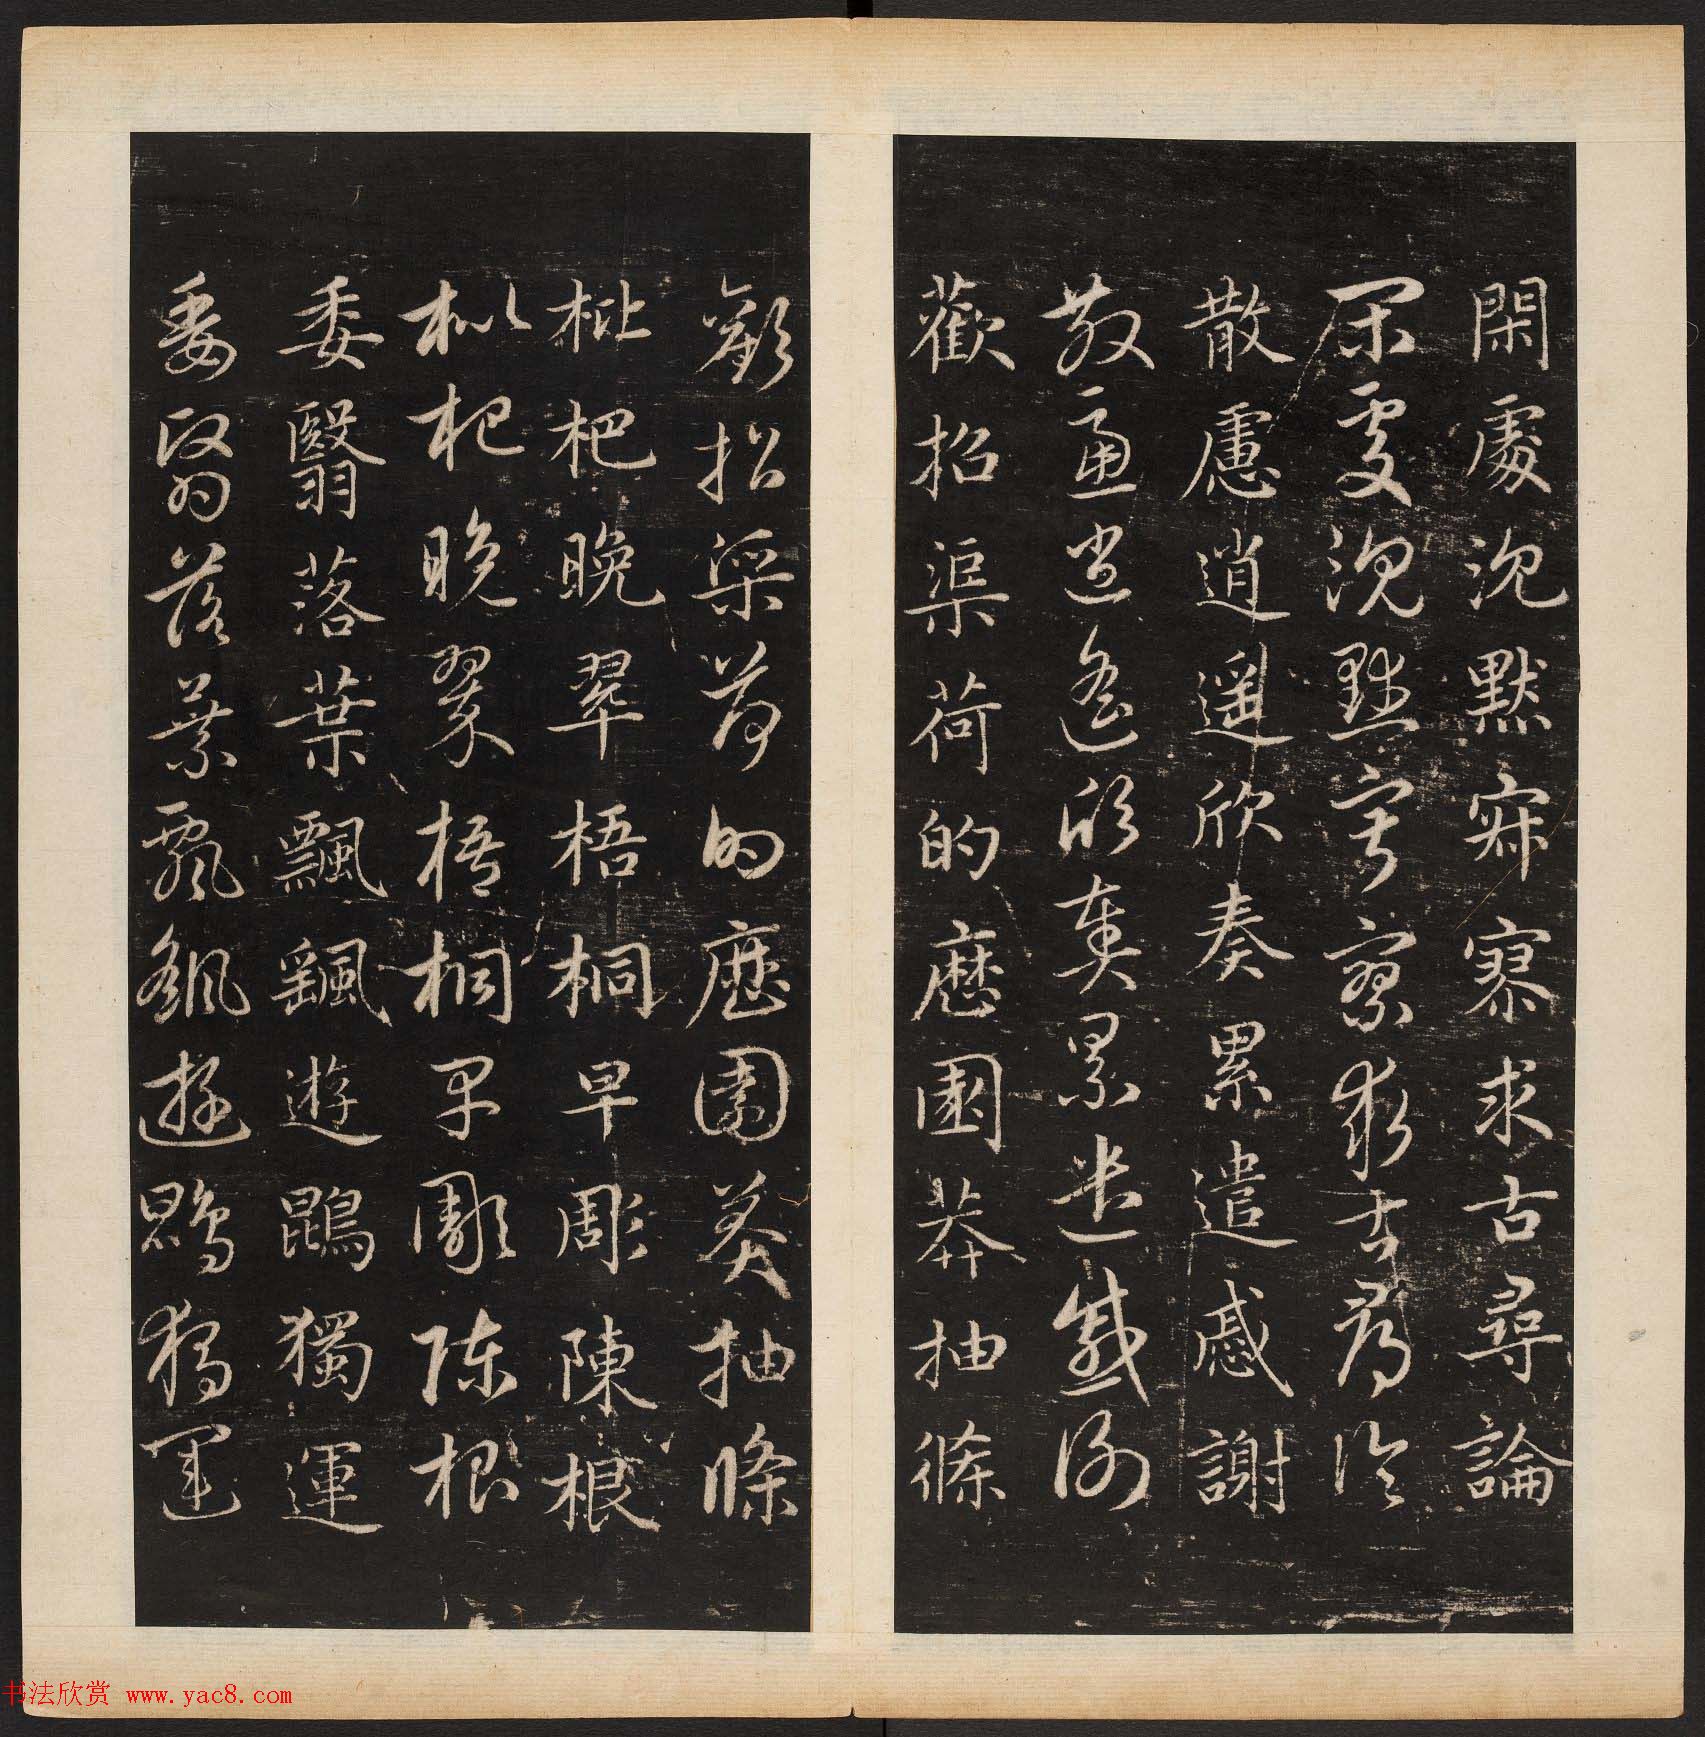 閑處沉默寂寥求古尋論
閑處沉默寂寥求古尋論
散慮逍遥欣奏累遣慼謝
散慮逍遥欣奏累遣慼謝
歡招渠荷的歷園莽抽條
歡招渠荷的歷園莽抽條
枇杷晚翠梧桐早彫陳根
枇杷晚翠梧桐早彫陳根
委翳落葉飄颻遊鵾獨運
委翳落葉飄颻遊鵾獨運
书法欣赏 www.yac8.com